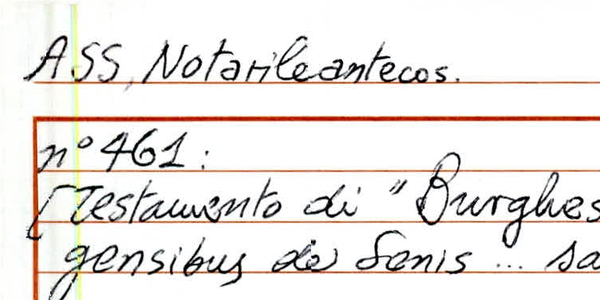 ASS, Notarileantecos.
n° 461:
[Testamento di "Burghes
gensibus de Senis ... sa